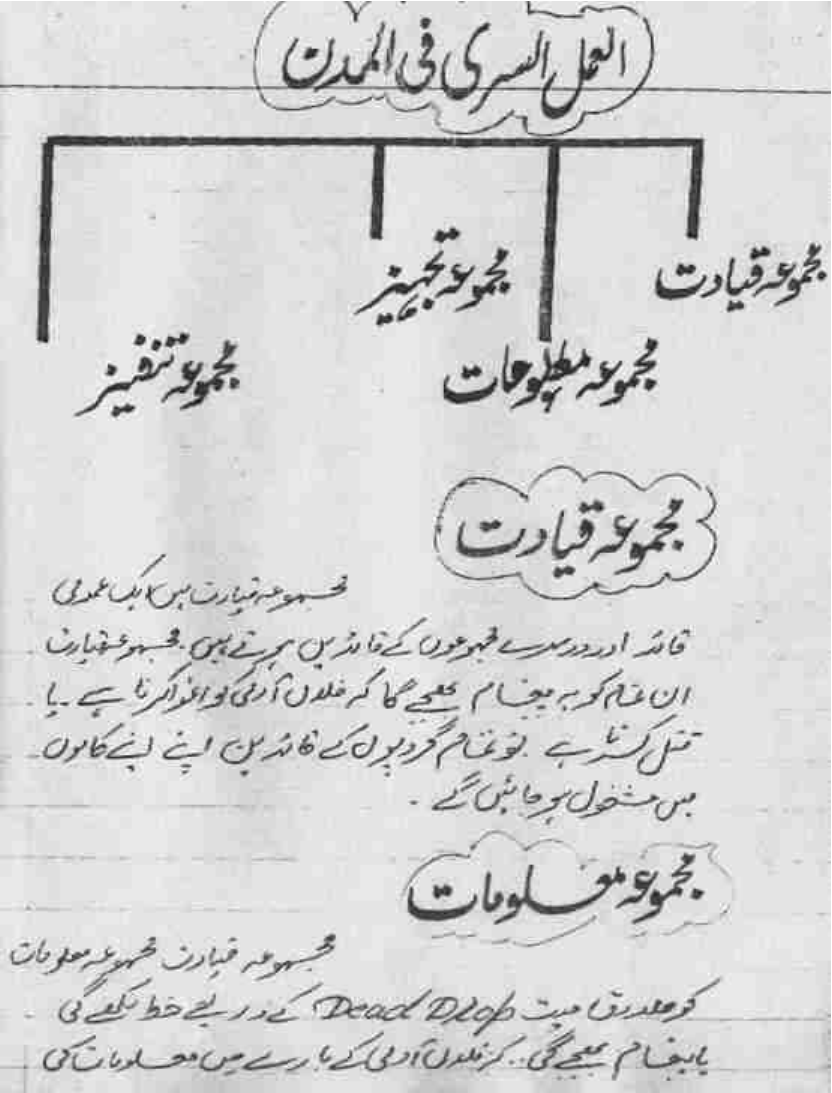 العمل السری فی المدن
مجموعہ قیادت
مجموعہ تجہیز
مجموعہ معلومات
مجموعہ تنفیز
مجموعہ قیادت
مجموعہ قیادت میں ایک عمومی
قائد اور دوسرے مجموعوں کے قائدین ہوتے ہیں۔ مجموعہ قیادت
ان تمام کو یہ پیغام بھیجے گا کہ فلاں آدمی کو اغوا کرنا ہے۔ یا
قتل کرنا ہے۔ تو تمام گروپوں کے قائدین اپنے اپنے کاموں
میں مشغول ہو جائیں گے۔
مجموعہ معلومات
مجموعہ قیادت مجموعہ معلومات
کو Dead Drop کے ذریعے خط لکھے گی
یا پیغام بھیجے گی۔ کہ فلاں آدمی کے بارے میں معلومات کی